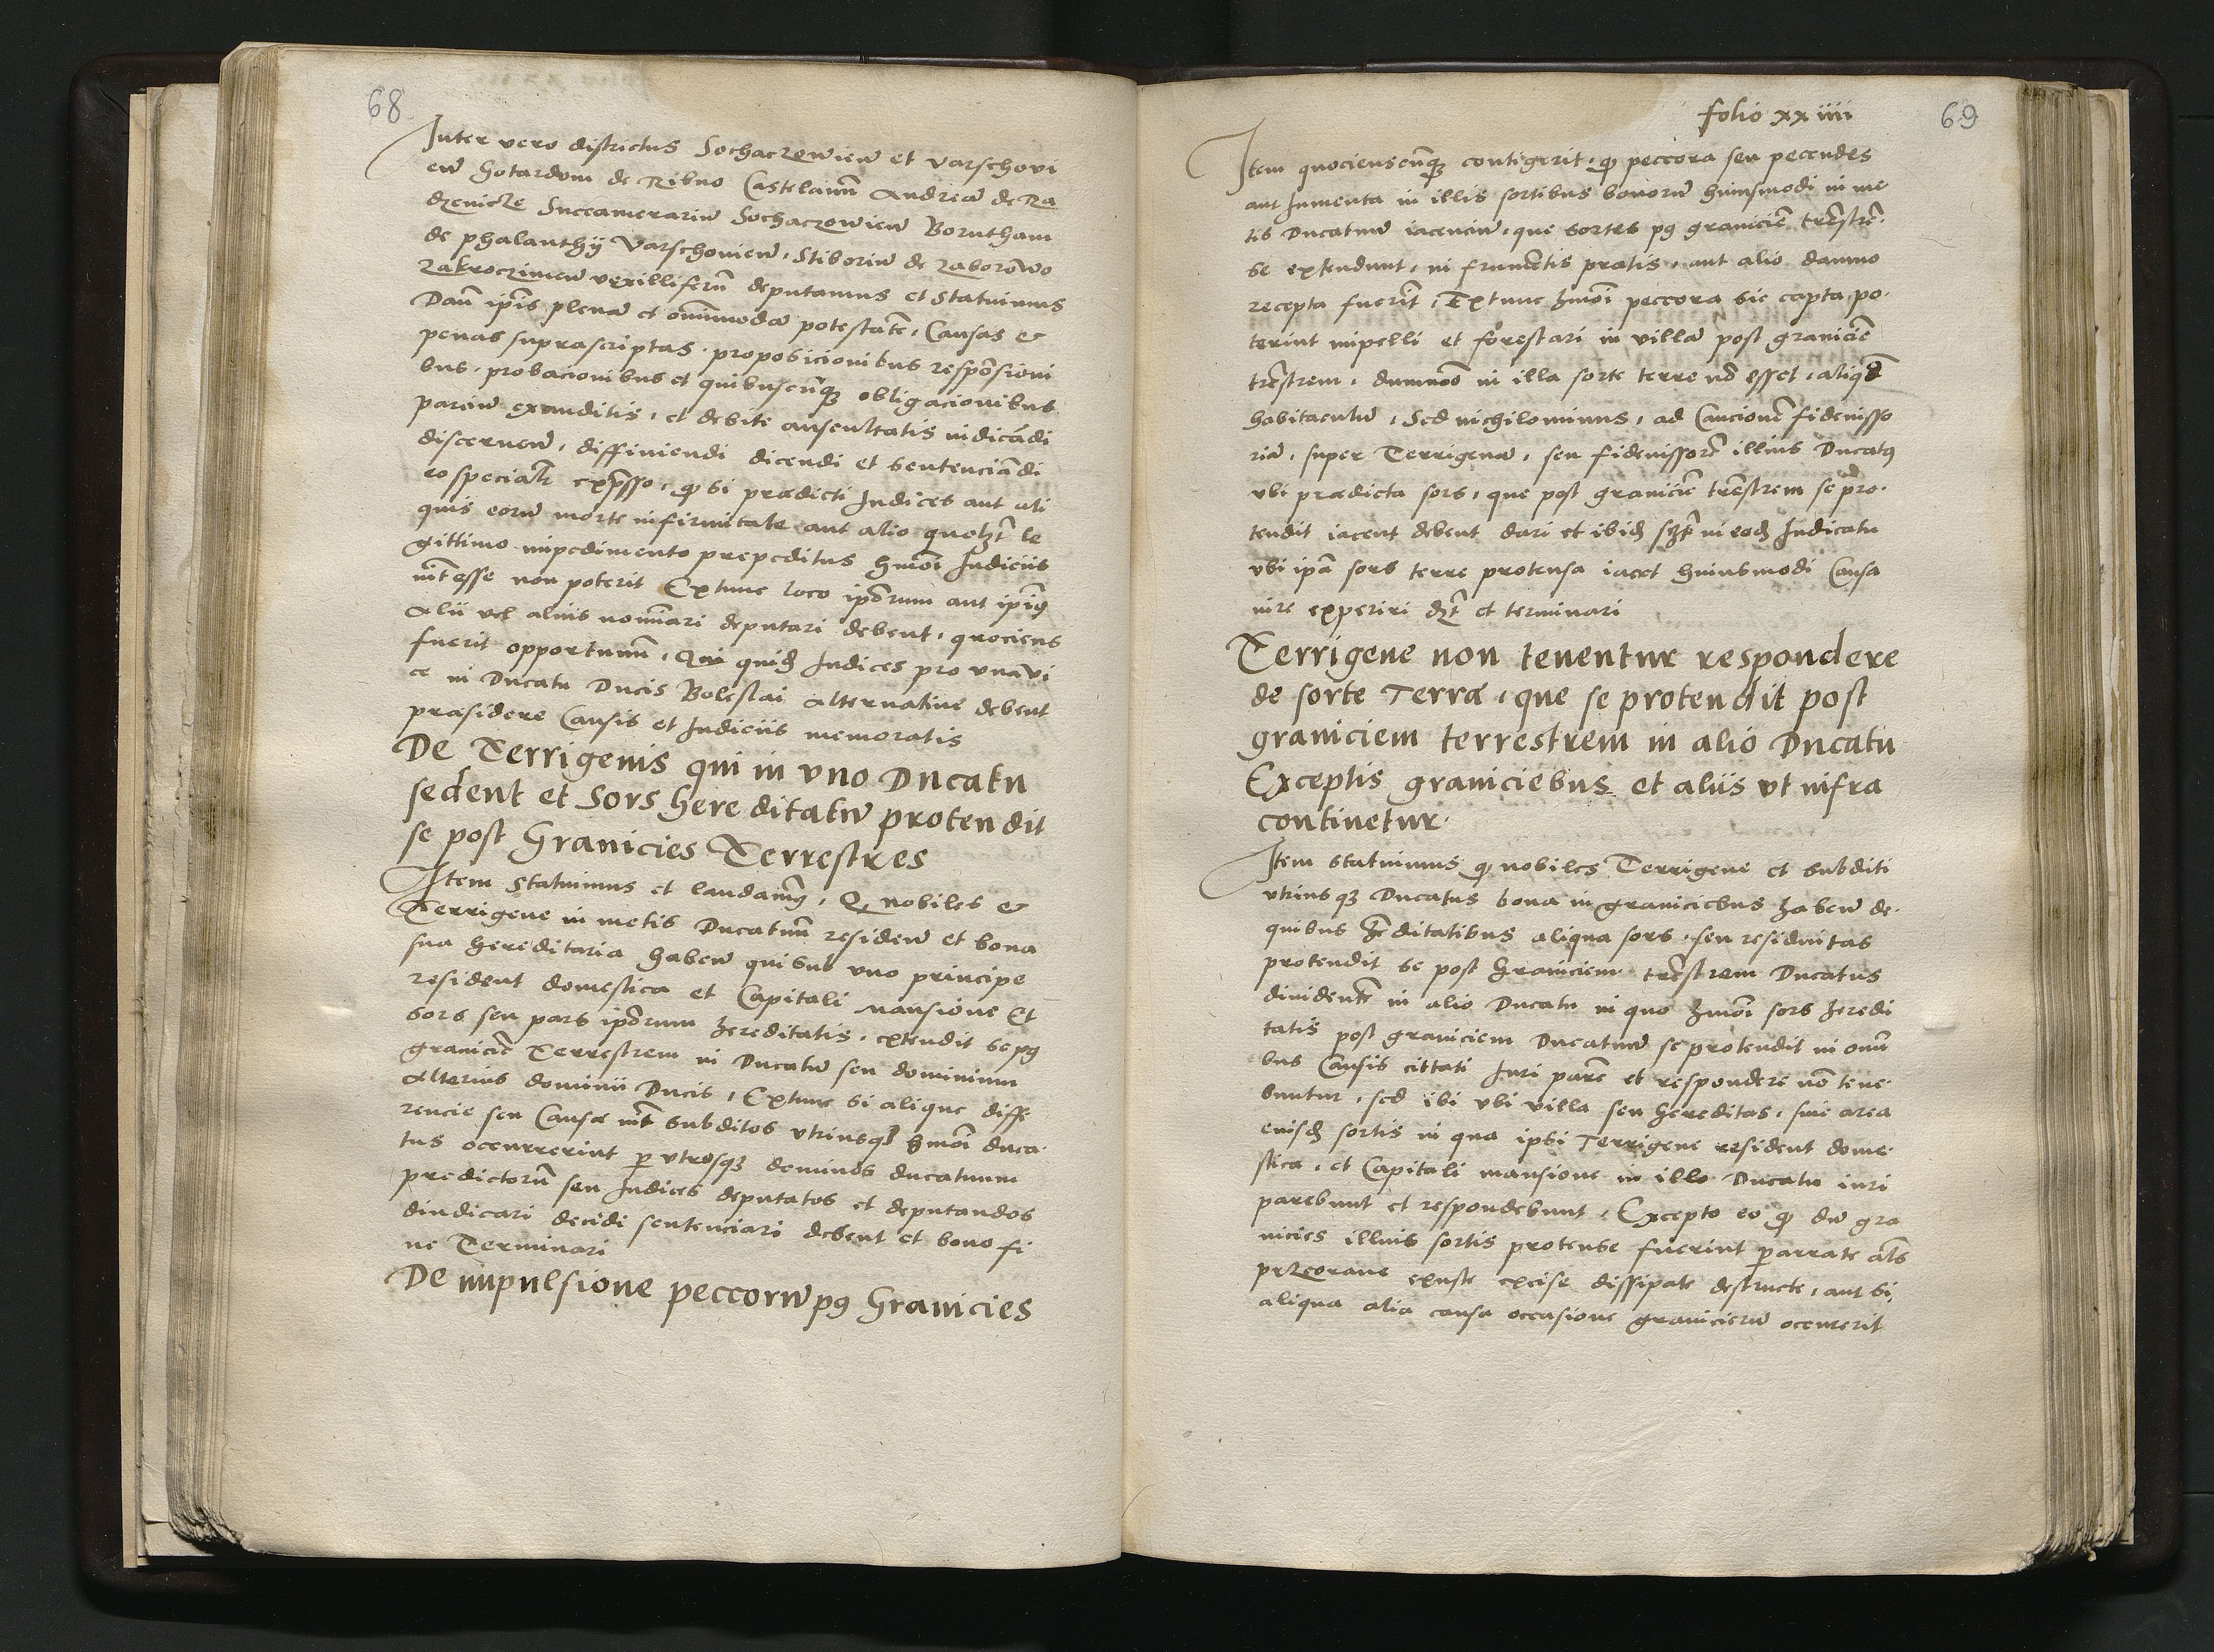 68
Inter vero districtus Sochaczewien̄ et Varschovi
en̄ Gotardum de Ribno Castelanū Andreā de Ra
dzenicze Succamerariū Sochaczewien̄ Borutham
de phalanthÿ Varschovien̄, Stiboriū de Zaborōwo
Zakroczimen̄ vexilliferū deputamus et Statuimus
Dan̄ ip̄is plenā et om̄imodā potestatē, Causas &
penas suprascriptas, proposicionibus respōsioni
bus, probacionibus et quibuscūqꝫ obligacionibus
parciū exauditis, et debite auscultatis iudicādi
discernen̄, diffiniendi dicendi et sentenciādi
eo specialr̄ exp̄sso, ꝙ si prædicti Judices aut ali
quis eorū morte infirmitate aut alio quolꝫt le
gittimo impedimento prepeditus hm̄oi Judiciis
int̄esse non poterit Extunc loco ip̄orum aut ip̄iꝯ
Alii vel alius nom̄ari deputari debent, quociens
fuerit opportunū, Qui quidꝫ Judices pro una vi
ce in Ducatu Ducis Boleslai alternative debent
præsidere Causis et Judiciis memoratis
De Terrigenis qui in uno Ducatu
sedent et Sors hereditatū protendit
se post Granicies Terrestres
Item Statuimus et laudamꝯ, Qꝫ nobiles &
Terrigene in metis Ducatuū residen̄ et bona
sua hereditaria haben̄ qui sub uno principe
resident domestica et Capitali mansione Et
sors seu pars ip̄orum hereditatis, extendit se pꝯ
graniciē Terrestrem in Ducatū seu dominium
Alterius dominii Ducis, Extunc si alique diffe
rencie seu Causæ int̄ subditos utriusqꝫ hm̄oi duca
tus occurrerint ꝑ utrosqꝫ dominos ducatuum
predictorū seu Judices deputatos et deputandos
diudicari decidi sentenciari debent et bono fi
ne Terminari
De impulsione peccorū pꝯ Granicies
folio xxiiii
69
Item quocienscūqꝫ contigerit, ꝙ peccora seu pecudes
aut Jumenta in illis sortibus bonorū huiusmodi in me
tis Ducatuū iacenciū, que sortes pꝯ graniciē trēstrē
se extendunt, in frumētis pratis, aut alio damno
recepta fuerīt, Extunc hm̄oi peccora sic capta po
terint impelli et forestari in villā post graniciē
trēstrem, dummō in illa sorte terre nō esset, aliqđ
habitaculū, Sed nichilominus, ad Caucionē fideiusso
riā, super Terrigenā, seu fideiussorē illius Ducatꝯ
ubi prædicta sors, que post graniciē trēstrem se pro
tendit iacent debent dari et ibidꝫ sꝫt in eodꝫ Judicatu
ubi ip̄a sors terre protensa iacet huiusmodi Causa
iure experiri dꝫt et terminari
Terrigene non tenentur respondere
de sorte Terræ, que se protendit post
graniciem terrestrem in alio Ducatu
Exceptis graniciebus et aliis ut infra
continetur.
Item Statuimus ꝙ nobiles Terrigene et subditi
utriusqꝫ Ducatus bona in graniciebus haben̄ de
quibus hēditatibus aliqua sors, seu residuitas
protendit se post Graniciem trēstrem Ducatus
dividentē in alio Ducatu in quo hm̄oi sors heredi
tatis post graniciem Ducatuū se protendit in omī
bus Causis cittati Juri parē et respondere nō tene
buntur, sed ibi ubi villa seu hereditas, sive area
eiusdꝫ sortis in qua ipsi Terrigene resident dome
stica, et Capitali mansione in illo Ducatu iuri
parebunt et respondebunt, Excepto eo ꝙ dū gra
nicies illius sortis protense fuerint ꝑarrate al̄s
przeorane exuste excise dissipate destructe, aut si
aliqua alia causa occasione granicierū occurerit